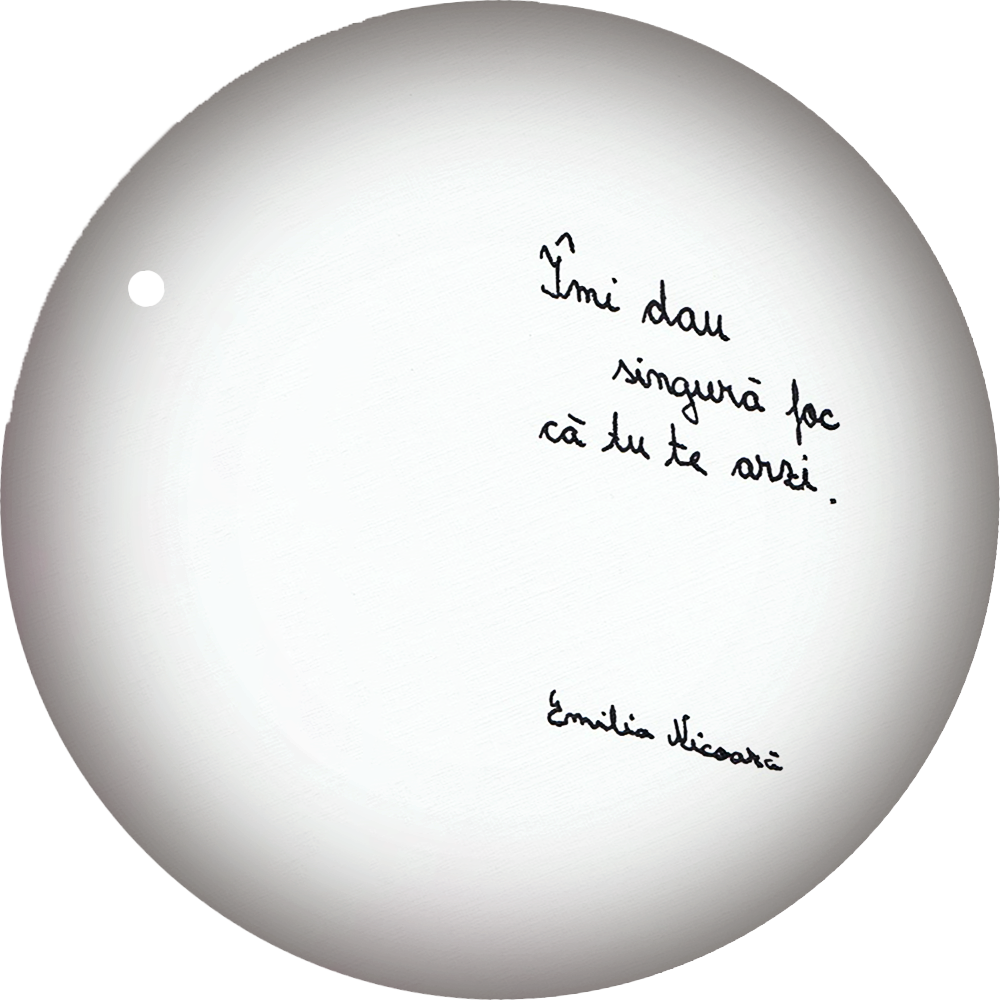 Îmi dau
singură foc
că tu te arzi.
Emilia Nicoară